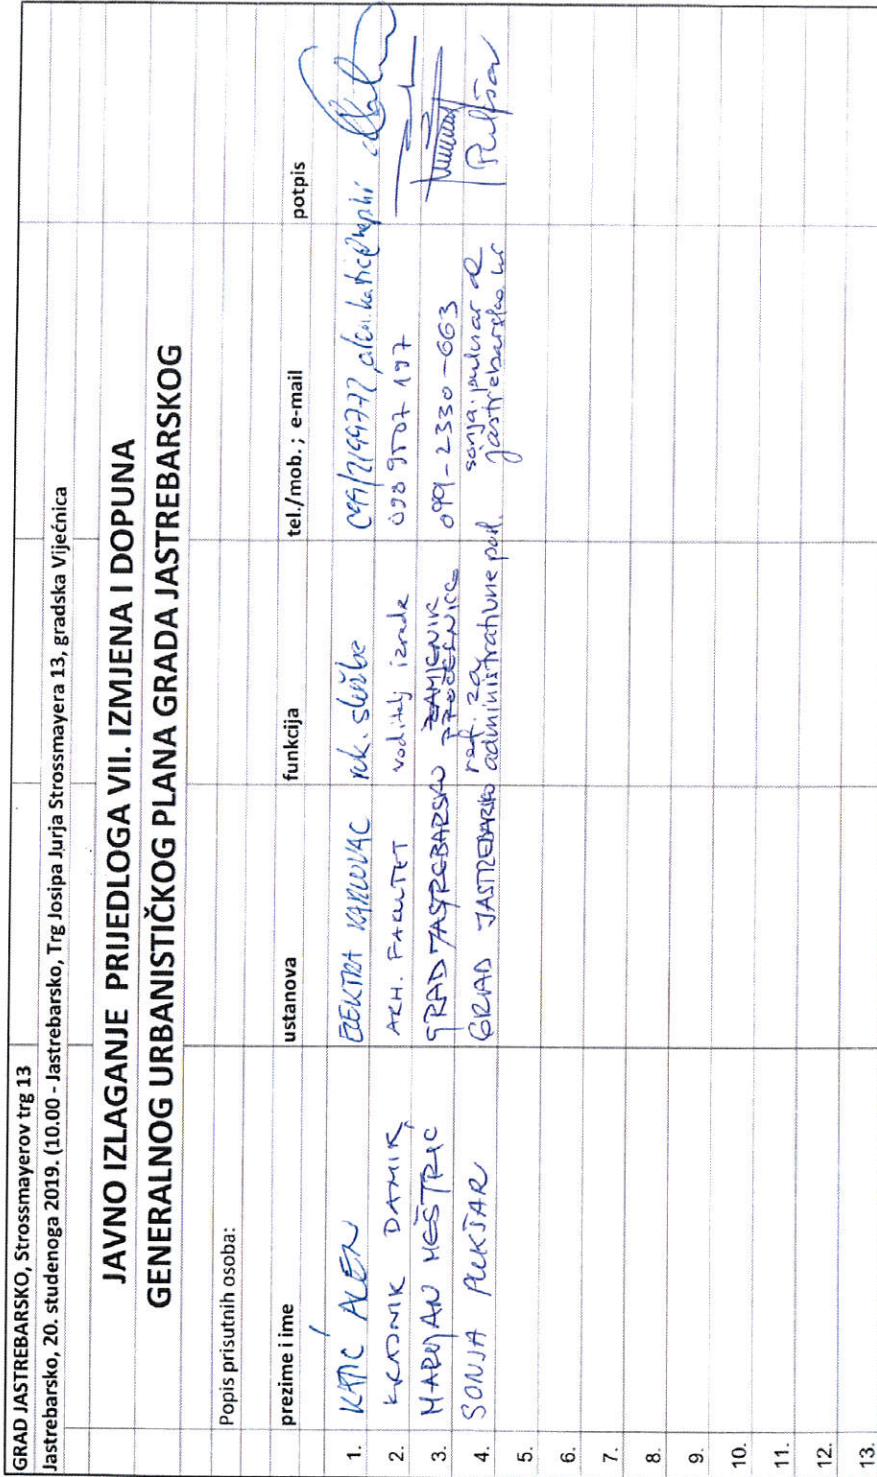 GRAD JASTREBARSKO, Strossmayerov trg 13
Jastrebarsko, 20. studenoga 2019. (10.00 - Jastrebarsko, Trg Josipa Jurja Strossmayera 13, gradska Vijećnica
JAVNO IZLAGANJE PRIJEDLOGA VII. IZMJENA I DOPUNA
GENERALNOG URBANISTIČKOG PLANA GRADA JASTREBARSKOG
Popis prisutnih osoba:
prezime i ime ustanova funkcija tel./mob. ; e-mail potpis
1. KATIĆ ALEN ELEKTRA KARLOVAC ruk. službe
2. DAMIR ARH. FAKULTET voditelj izrade 098 9507 197
3. MARIJAN MEŠTRIĆ GRAD JASTREBARSKO ZAMJENIK PROČELNICE 099-2330-663
4. SONJA PUKŠAR GRAD JASTREBARSKO ref. za administrativne posl. sonja.puksar@jastrebarsko.hr Pukšar
5.
6.
7.
8.
9.
10.
11.
12.
13.